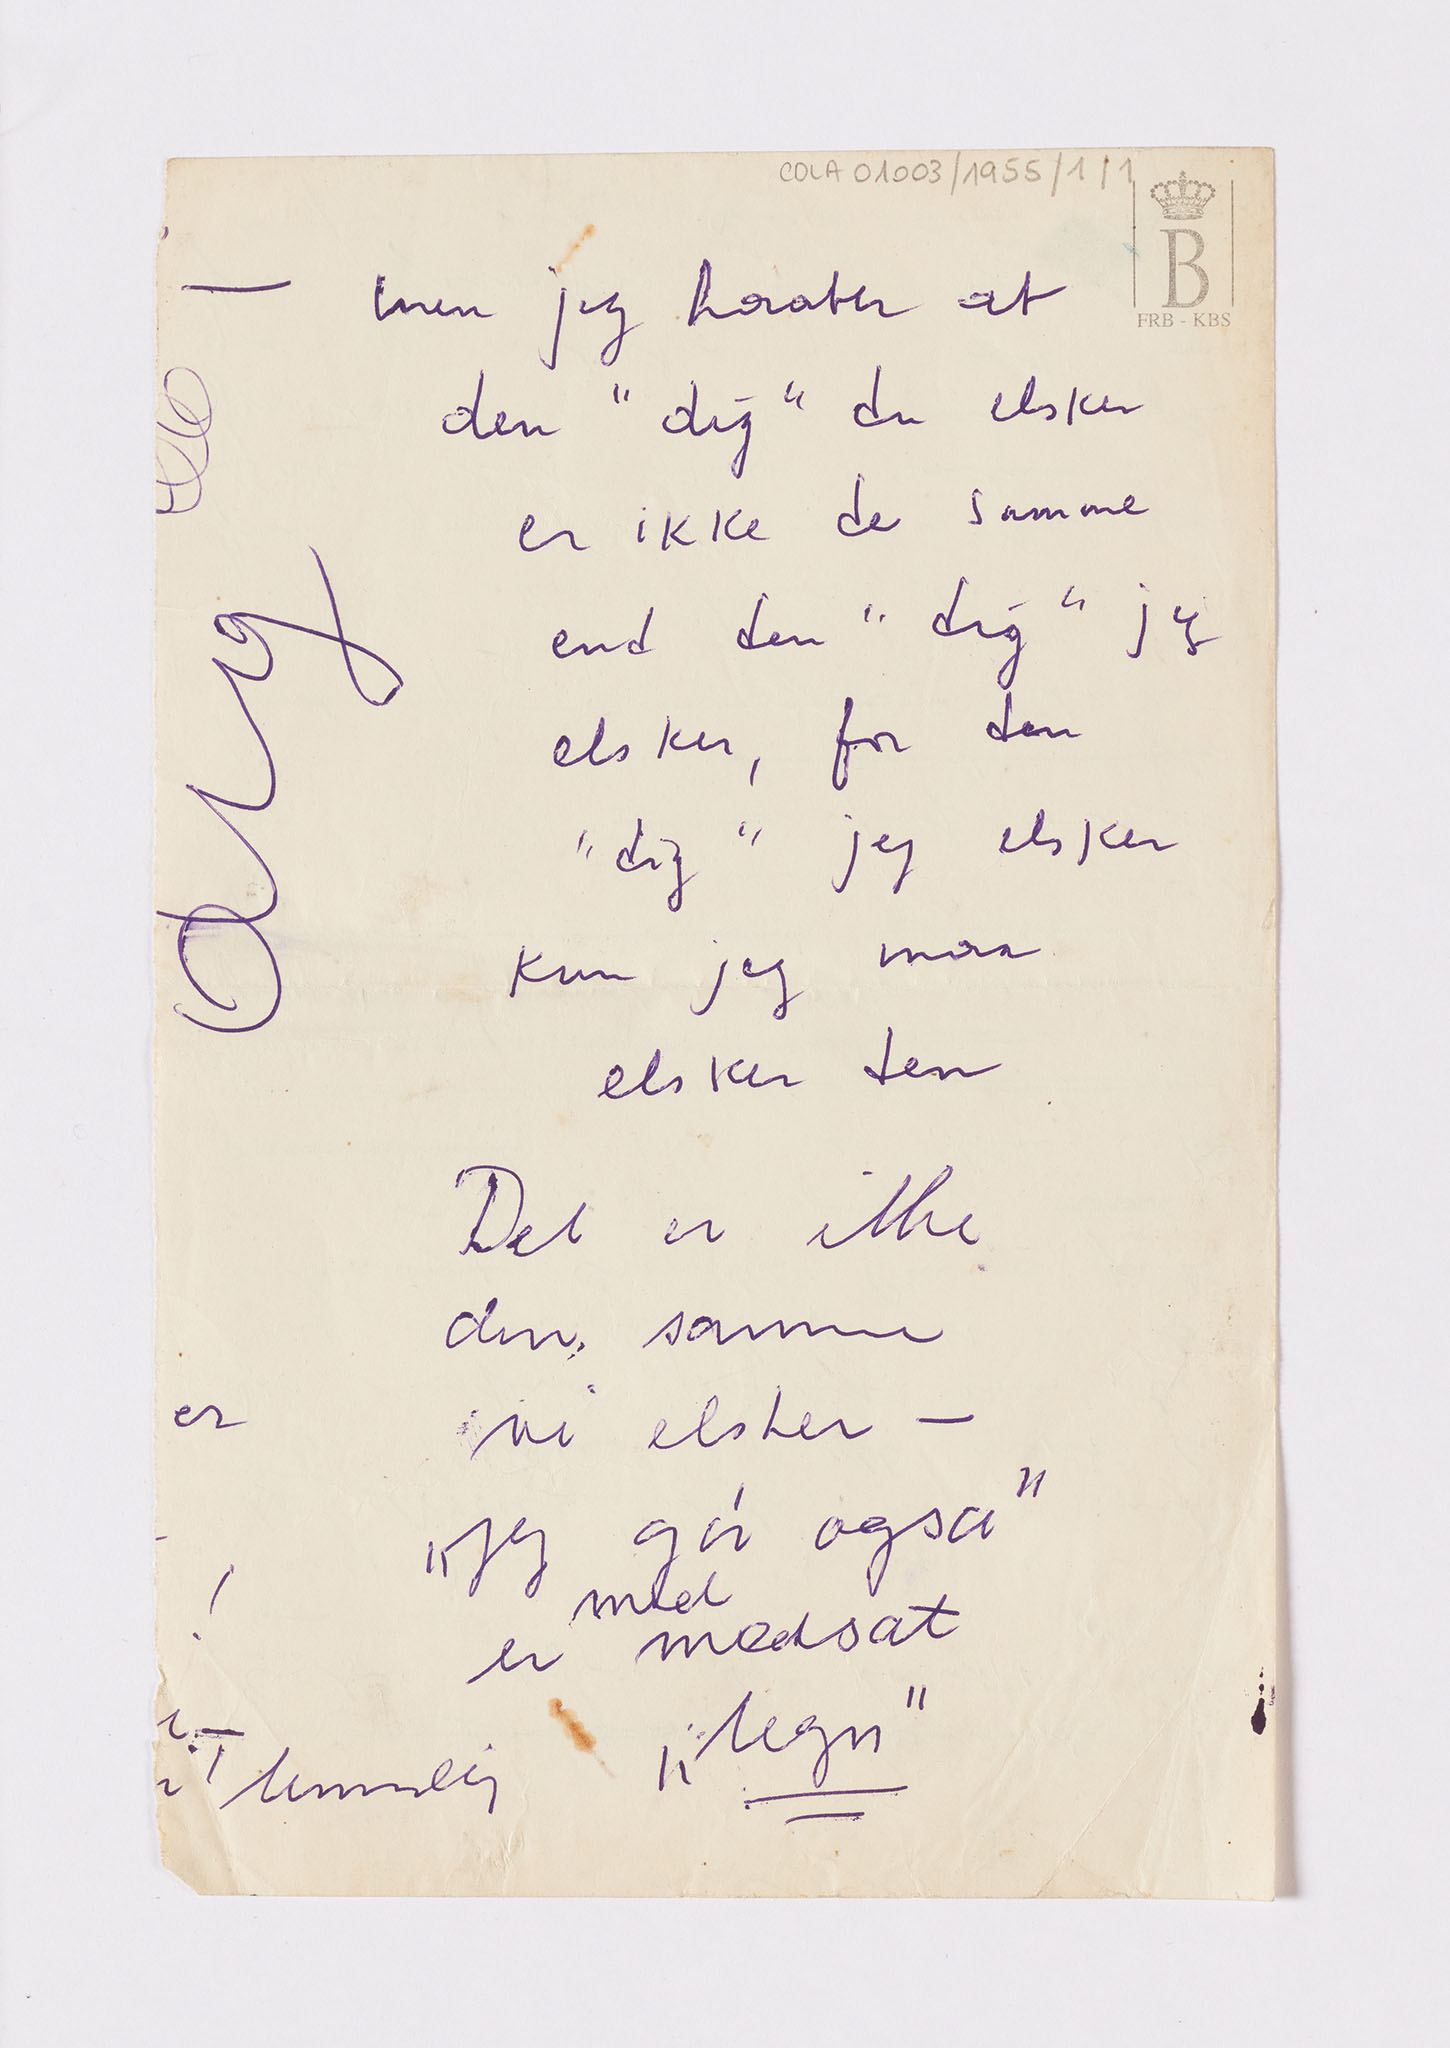 COLA 01003/1955/1/1
B
FRB - KBS
— men jeg haaber at
den "dig" du elsker
er ikke de samme
end den "dig" jeg
elsker, for den
"dig" jeg elsker
kun jeg maa
elsker den
Det er ikke
den samme
vi elsker —
„jeg gör også"
med
er modsat
„legn"
er
!